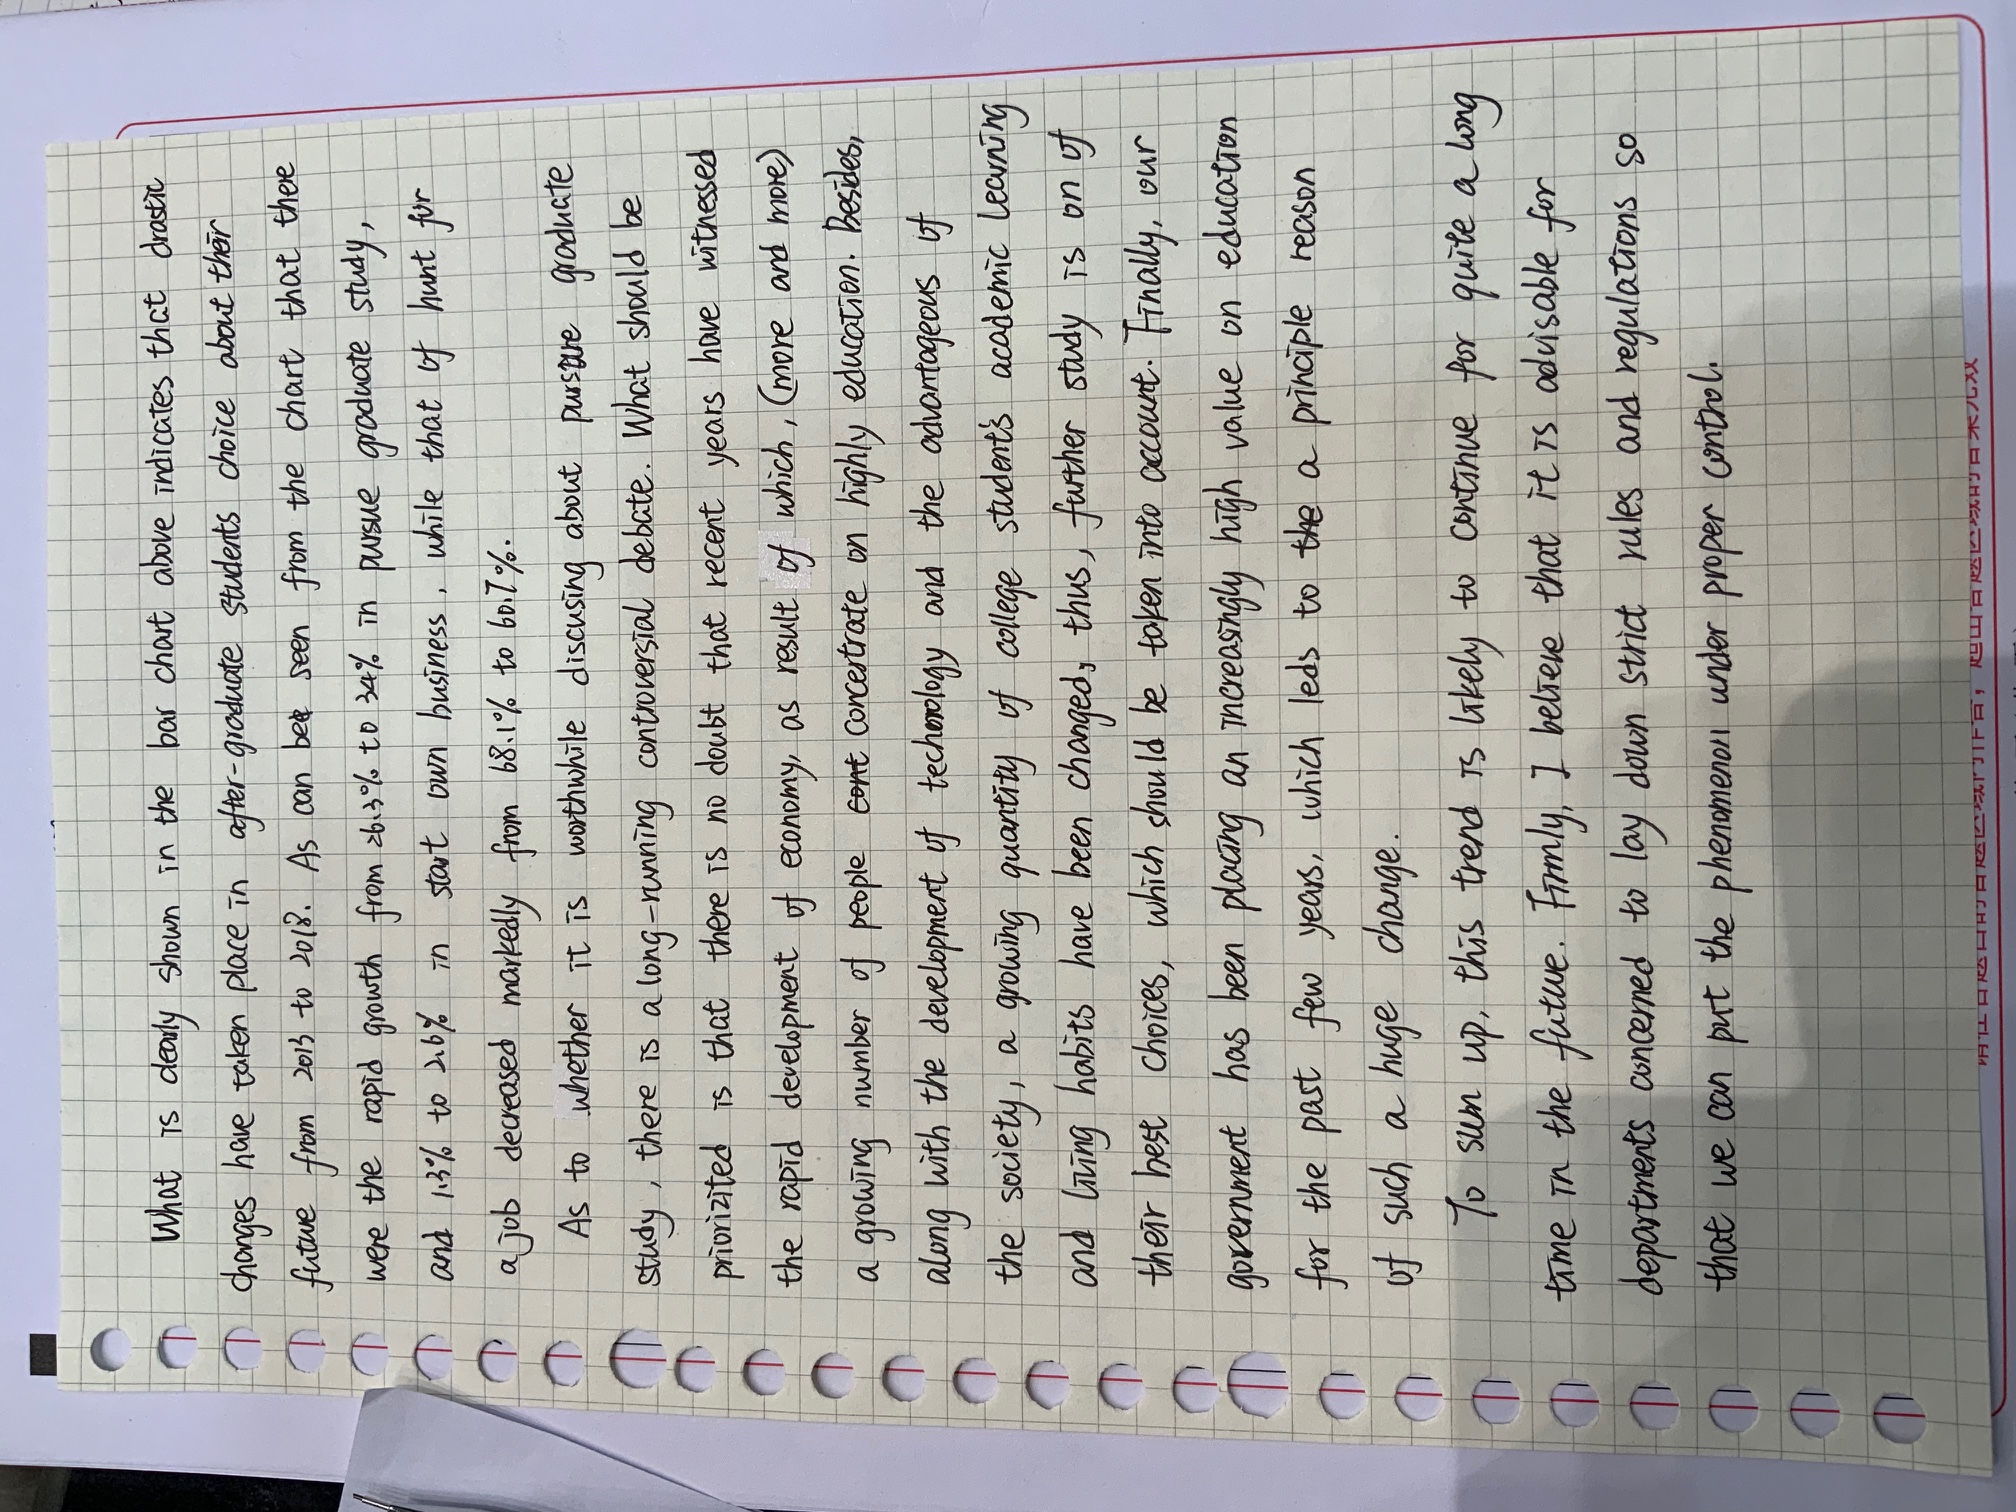 What is clearly shown in the bar chart above indicates that drastic
changes have taken place in after-graduate students choice about their
future from 2013 to 2018. As can be seen from the chart that there
were the rapid growth from 26.3% to 34% in pursue graduate study,
and 1.3% to 2.6% in start own business, while that of hunt for
a job decreased markedly from 68.1% to 60.7%.
As to whether it is worthwhile discusing about pursue graduate
study, there is a long-running controversial debate. What should be
priorizited is that there is no doubt that recent years have witnessed
the rapid development of economy, as result of which, (more and more)
a growing number of people cont concertrate on highly education. Besides,
along with the development of technology and the advantageous of
the society, a growing quantity of college student's academic learning
and living habits have been changed, thus, further study is on of
their best choices, which should be taken into account. Finally, our
government has been placing an increasingly high value on education
for the past few years, which leds to the a principle reason
of such a huge change.
To sum up, this trend is likely to continue for quite a long
time in the future. Firmly, I believe that it is advisable for
departments concerned to lay down strict rules and regulations so
that we can put the phenomenon under proper control.